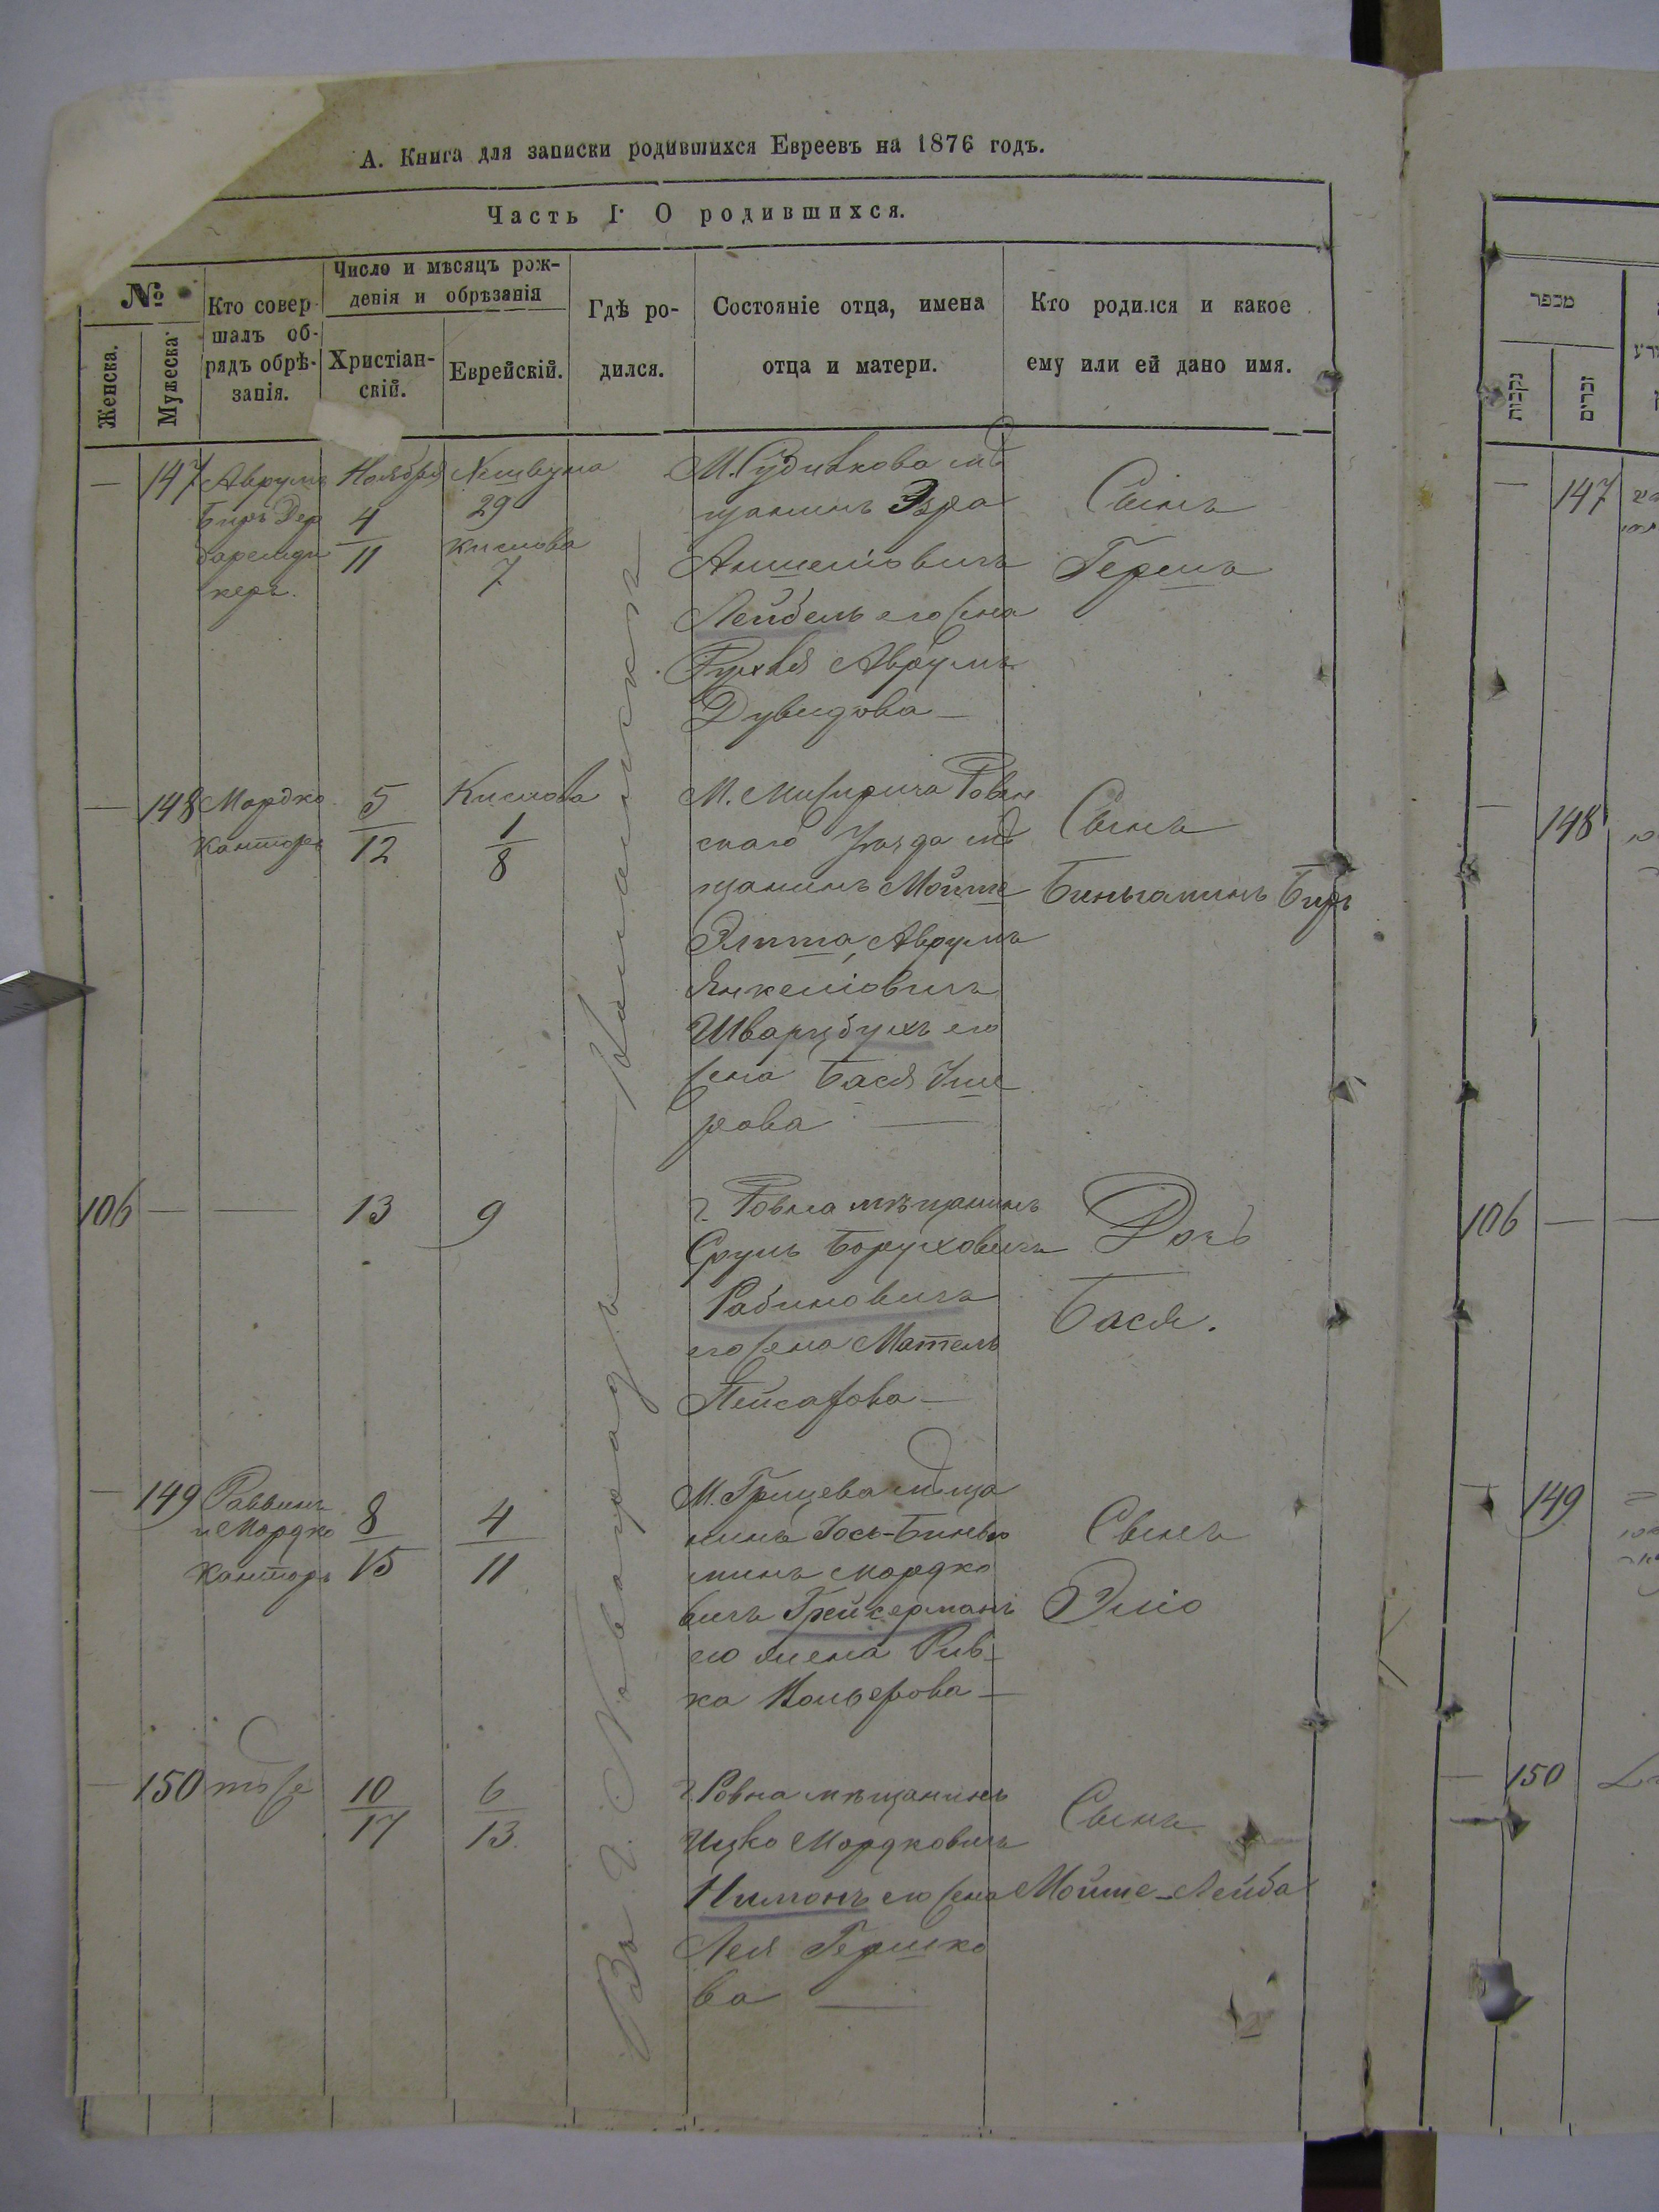 А. Книга для записки родившихся Евреевъ на 1876 годъ.
Часть I. О родившихся.
№
Женска.
Мужеска.
Кто совер-
шалъ об-
рядъ обрѣ-
занія.
Число и мѣсяцъ рож-
денія и обрѣзанія
Христіан-
скій.
Еврейскій.
Гдѣ ро-
дился.
Состояніе отца, имена
отца и матери.
Кто родился и какое
ему или ей дано имя.
Въ г. Новоградъ
— 147
Аврумъ
Беръ
керъ.
Ноября
4
11
Хешвуна
29
Кислова
7
М. Судилкова мѣ
щанинъ Эзра
Аншеліовичъ
Лейбель его жена
Рухля Аврумъ
Дувидова —
Сынъ
Герша
— 148
Мордко
Канторъ
5
12
Кислова
1
8
М. Межирича Ровен
скаго Уѣзда мѣ
щанинъ Мойше
Аврумъ
Янкеліовичъ
Шварцбухъ его
жена Бася Уше
рова —
Сынъ
Биньяминъ Беръ
106 — —
13
9
г. Ровна мѣщанинъ
Сруль Боруховичъ
Рабиновичъ
его жена Мотель
Пейсахова —
Дочь
Бася.
— 149
Раввинъ
и Мордко
Канторъ
8
15
4
11
М. Грицева мѣща
нинъ Іось-Бинья
минъ Мордко
вичъ Грейсерманъ
его жена Рив-
ка —
Сынъ
Эліо
— 150
тоже
10
17
6
13.
г. Ровна мѣщанинъ
Ицко Мордковичъ
его жена
Лея Гершко
ва —
Сынъ
Мойше-Лейба
מספר
נקבות
זכרים
— 147
— 148
106 — —
— 149
— 150